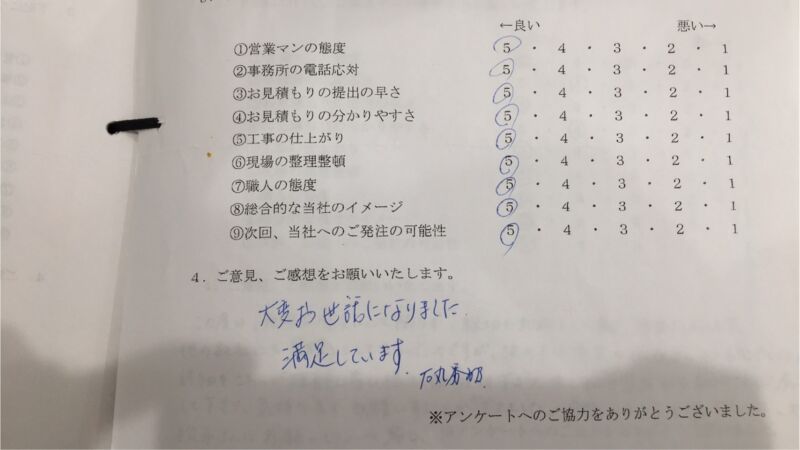 ←良い 悪い→
①営業マンの態度 5 ・ 4 ・ 3 ・ 2 ・ 1
②事務所の電話応対 5 ・ 4 ・ 3 ・ 2 ・ 1
③お見積もりの提出の早さ 5 ・ 4 ・ 3 ・ 2 ・ 1
④お見積もりの分かりやすさ 5 ・ 4 ・ 3 ・ 2 ・ 1
⑤工事の仕上がり 5 ・ 4 ・ 3 ・ 2 ・ 1
⑥現場の整理整頓 5 ・ 4 ・ 3 ・ 2 ・ 1
⑦職人の態度 5 ・ 4 ・ 3 ・ 2 ・ 1
⑧総合的な当社のイメージ 5 ・ 4 ・ 3 ・ 2 ・ 1
⑨次回、当社へのご発注の可能性 5 ・ 4 ・ 3 ・ 2 ・ 1
4．ご意見、ご感想をお願いいたします。
大変お世話になりました.
満足しています.
※アンケートへのご協力をありがとうございました。